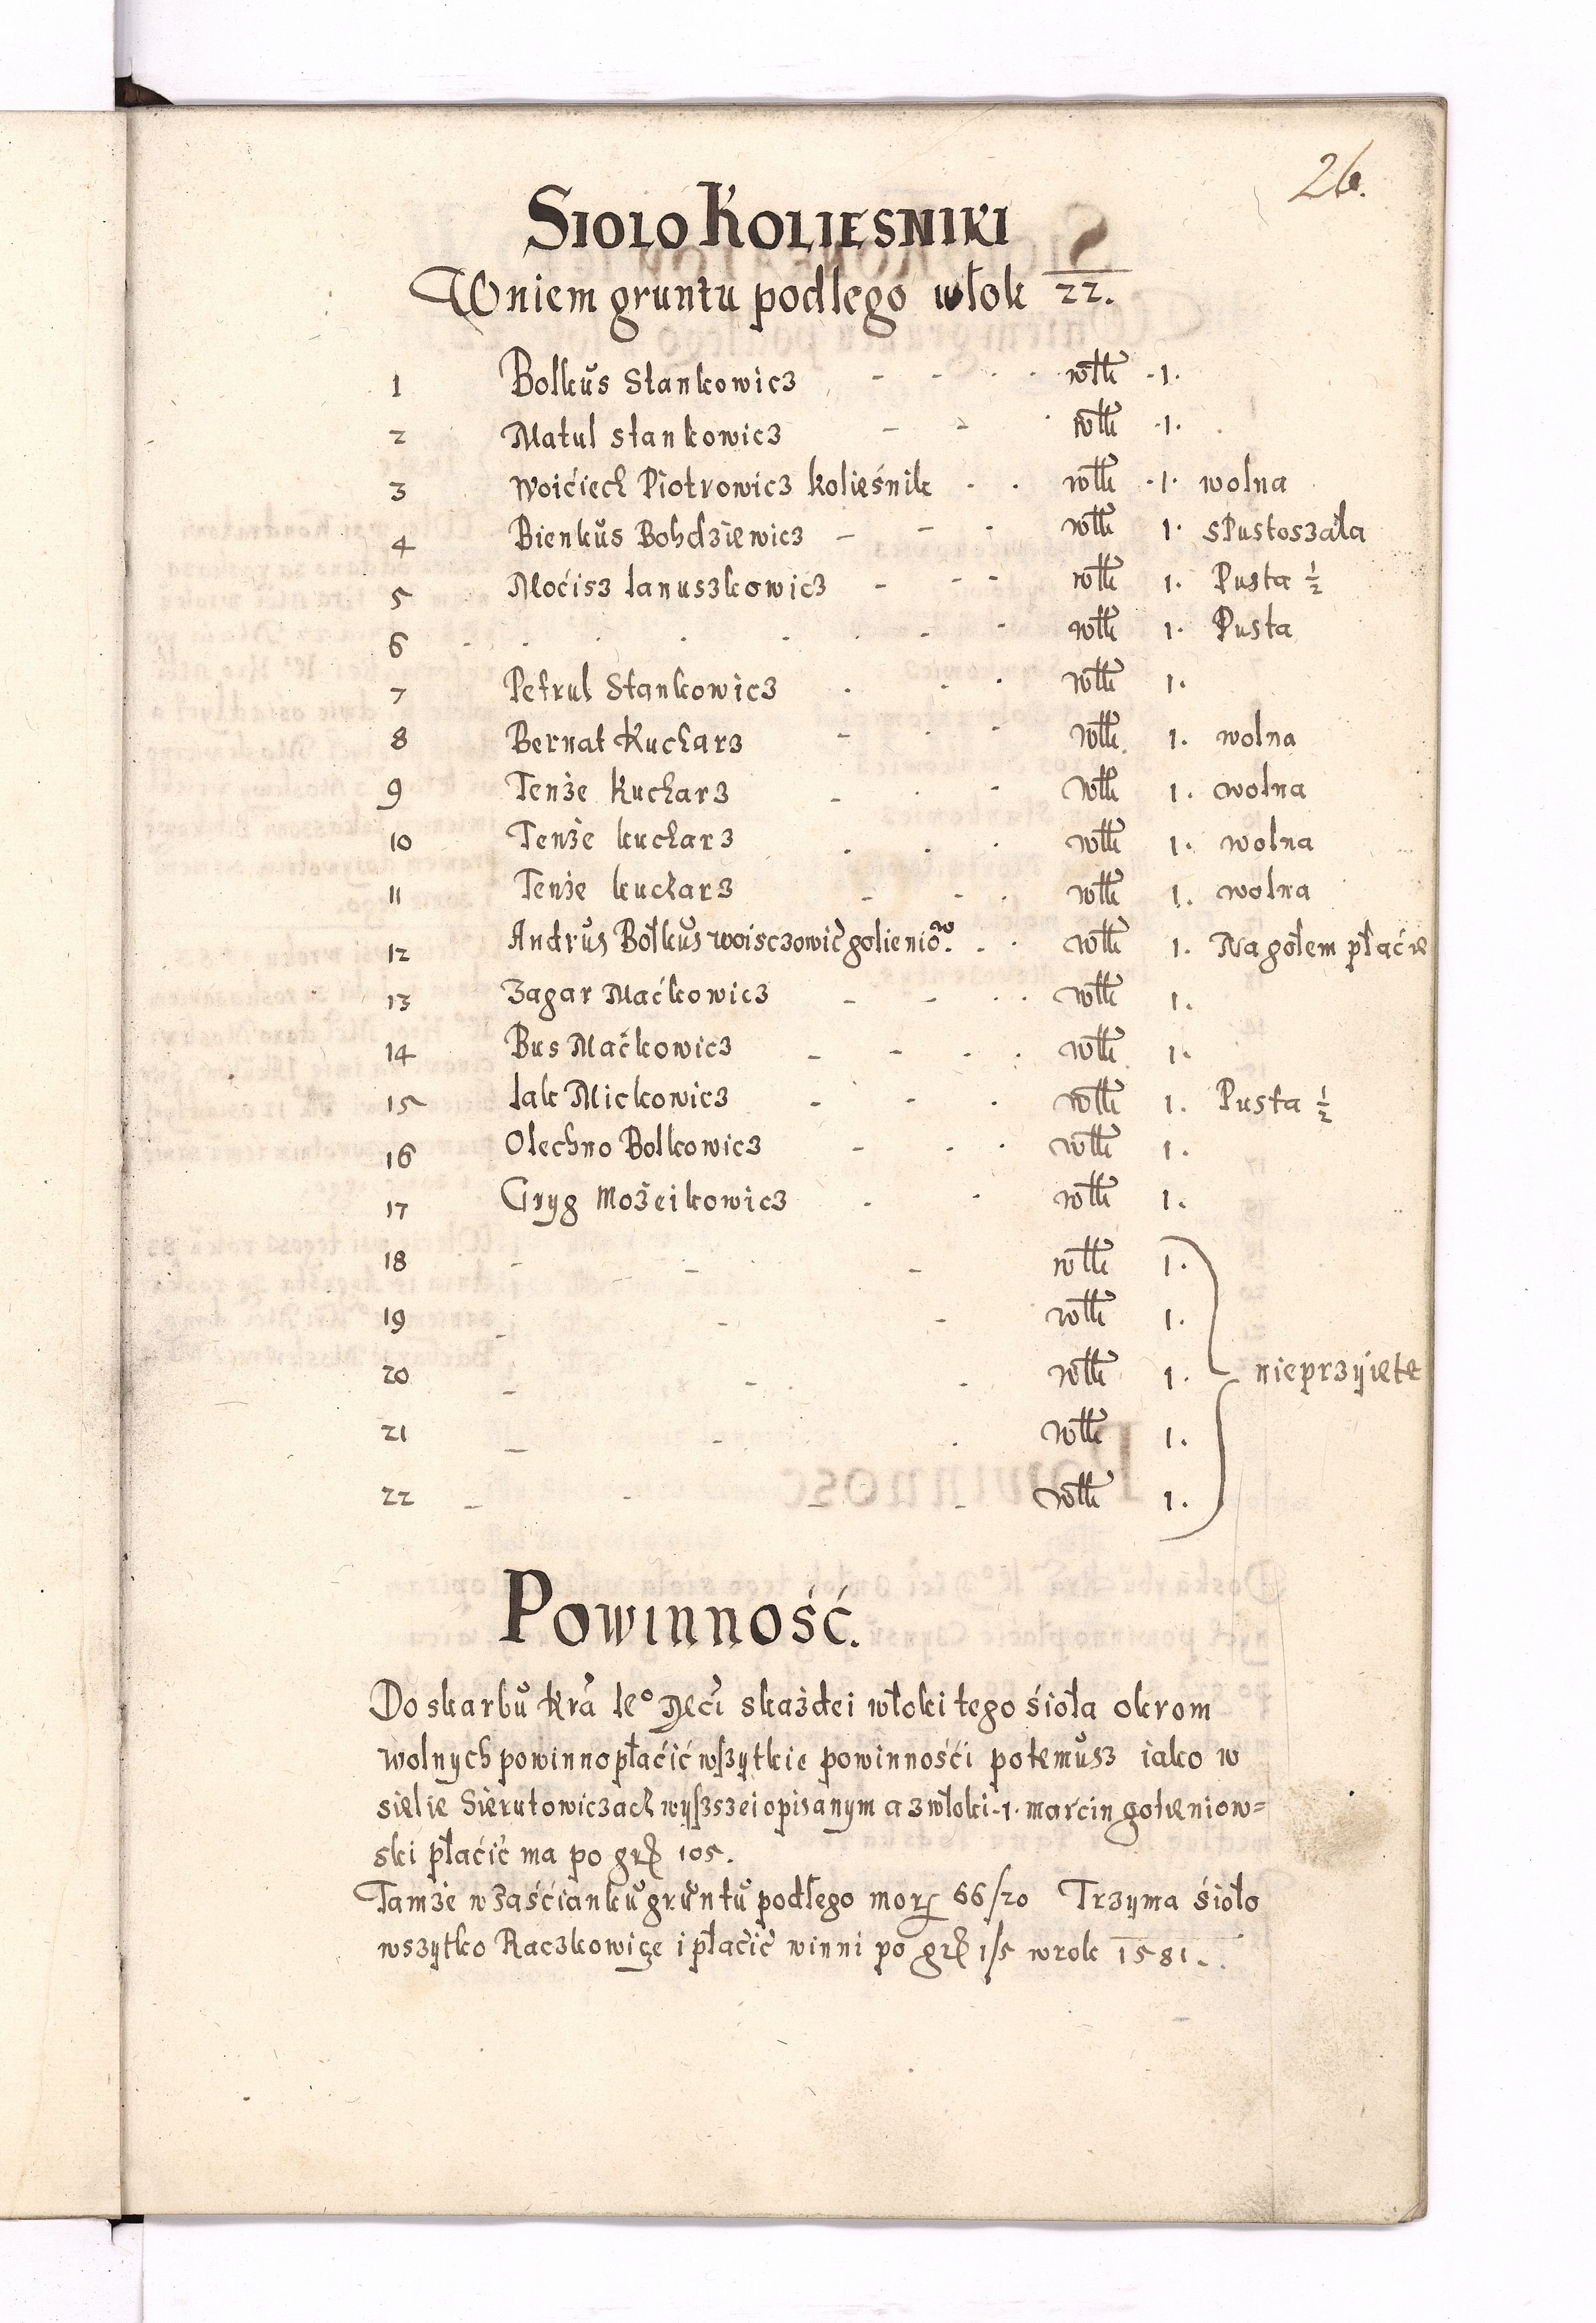 26.
SIOLO KOLIESNIKI
W niem gruntu podlego włok 22.
1 Bolkus Stankowicz - - . . włk .1.
2 Matul stankowicz - - . włk .1.
3 Woićiech Piotrowicz kolieśnik . . włk .1. wolna
4 Bienkus Bohdziewicz - - . włk 1. sPustoszała
5 Moćisz Ianuszkowicz - - - włk 1. Pusta ½
6 - . . . . - - włk 1. Pusta
7 Petrul Stankowicz . . . włk 1.
8 Bernat Kucharz - . - włk 1. wolna
9 Tenże Kucharz - . - włk 1. wolna
10 Tenże kucharz . . . włk 1. wolna
11 Tenże kucharz - - . włk 1. wolna
12 Andrus Bolkus woisczowic golienio^w. . . włk 1. Na gołem płacie
13 Zagar Maćkowicz - - . . włk 1.
14 Bus Maćkowicz - - . . włk 1.
15 Iak Mickowicz - - . włk 1. Pusta ½
16 Olechno Bolkowicz - . . włk 1.
17 Gryg Możeikowicz . . włk 1.
18 - - - - włk 1.
19 - - - włk 1.
20 - - . - włk 1. nieprzyięte
21 - - . włk 1.
22 - - - - włk 1.
POWINNOŚĆ.
Do skarbu Kra Ie° Mci skażdei włoki tego śioła okrom
wolnych powinno płaćić wszytkie powinnośći potemusz iako w
sielie Sierutowiczach wyszszei opisanym a z włoki .1. marcin gołieniow=
ski płaćić ma po grȝ 105.
Tamże w zaśćianku gruntu podłego morg 66/20 Trzyma śioło
wszytko Raczkowięe i płaćić winni po grȝ 1/5 wrok 1581.